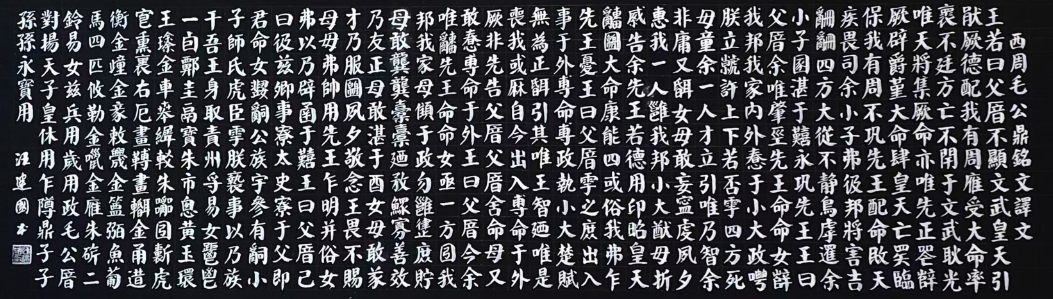 西周毛公鼎銘文譯文
王若曰父厝不顯文武皇天引
猷厥德配我有周雁受大命率
褱不廷方亡不閈于文武耿光
唯天將集厥命亦唯先正辥
厥辟爵堇大命肆皇天亡臨
保我有周不巩先王配命敃天
疾畏司余小子弗彼邦將害吉
翩翩四方大從不静烏虖趯余
小子圂湛于囏永巩先王王曰
父厝余唯肇巠先王命命女辥
我邦我家内外惷于小大政甹
朕立虩許上下若否雩四方死
母童余一人才立引唯乃智余
非庸又聞女母敢妄寍虔夙夕
惠我一人雝我邦小大猷母折
告余先王若德用印昭皇天
圝大命康能四或俗我弗乍
先王憂王曰父厝雩之庶出入
事于外專命專政埶小大楚賦
無唯正聞引其唯王智廼唯是
喪我或厤自今出入專命于外
厥非先告父厝父厝舍命母又
敢惷專命于外王曰父厝今余
唯先王命命女亟一方圂我
邦我家母顀于政勿雝庶貯
母敢龔龔橐橐廼敄鰥寡善效
乃友正母敢湛于酉女母敢
才乃服圝夙夕敬念王畏不賜
母母弗帥用先王乍明井俗女
弗以乃辟圅于囏王曰父厝已
曰彶茲卿事寮太史寮于父即
君命女嗣公族雩參有嗣小
子師氏虎臣雩朕褻事以乃族
干吾王身取責卅寽易女鬯
一卣鄭圭瓚朱市悤黃玉環
王瑹金車較朱靳虎
冟熏裏右厄畫轉畫金甬道
衡金金豪金弼魚葡
馬四匹攸勒金金雁朱旂二
鈴易女茲兵用歲用政毛公厝
對揚天子皇休用乍尊鼎子子
孫孫永寶用